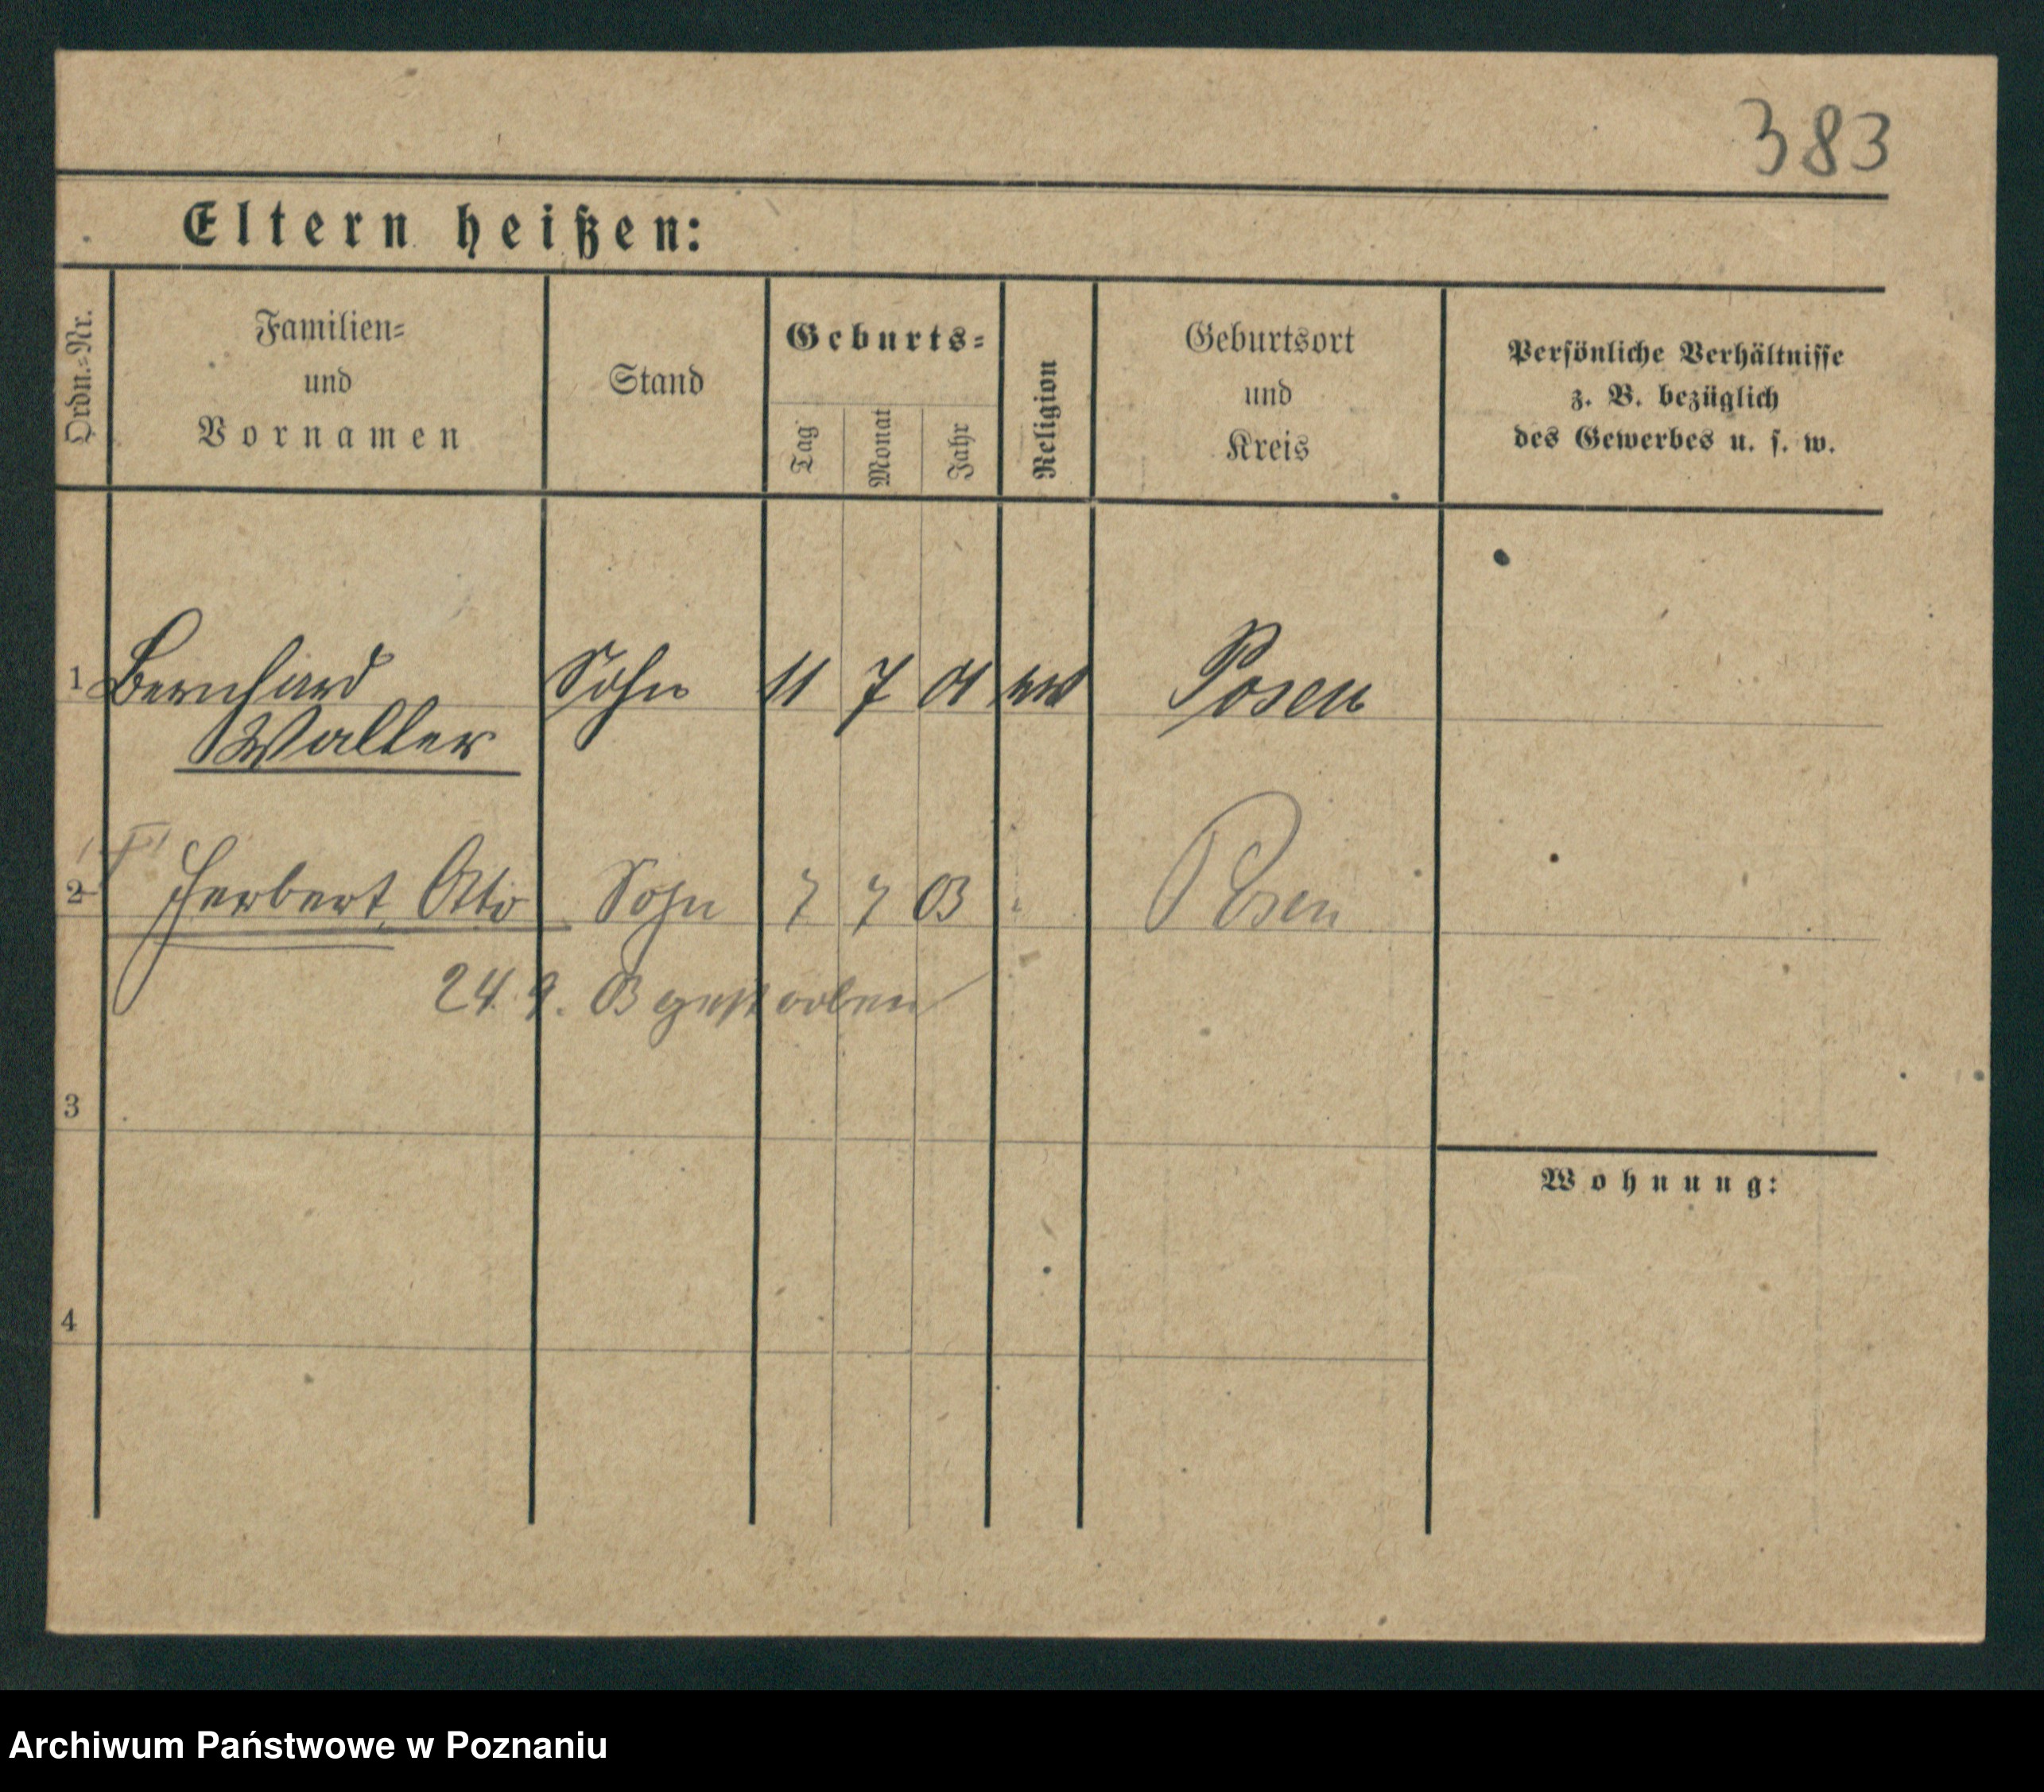 383
Eltern heißen:
Ordn.=Nr.
Familien=
und
Vornamen
Stand
Geburts=
Tag
Monat
Jahr
Religion
Geburtsort
und
Kreis
Persönliche Verhältnisse
z. B. bezüglich
des Gewerbes u. s. w.
1 Bernhard Sohn 11 7 01 Posen
Walter
2 Herbert Otto Sohn 7 7 03 Posen
24. 9. 03 gestorben
3
Wohnung:
4
Archiwum Państwowe w Poznaniu